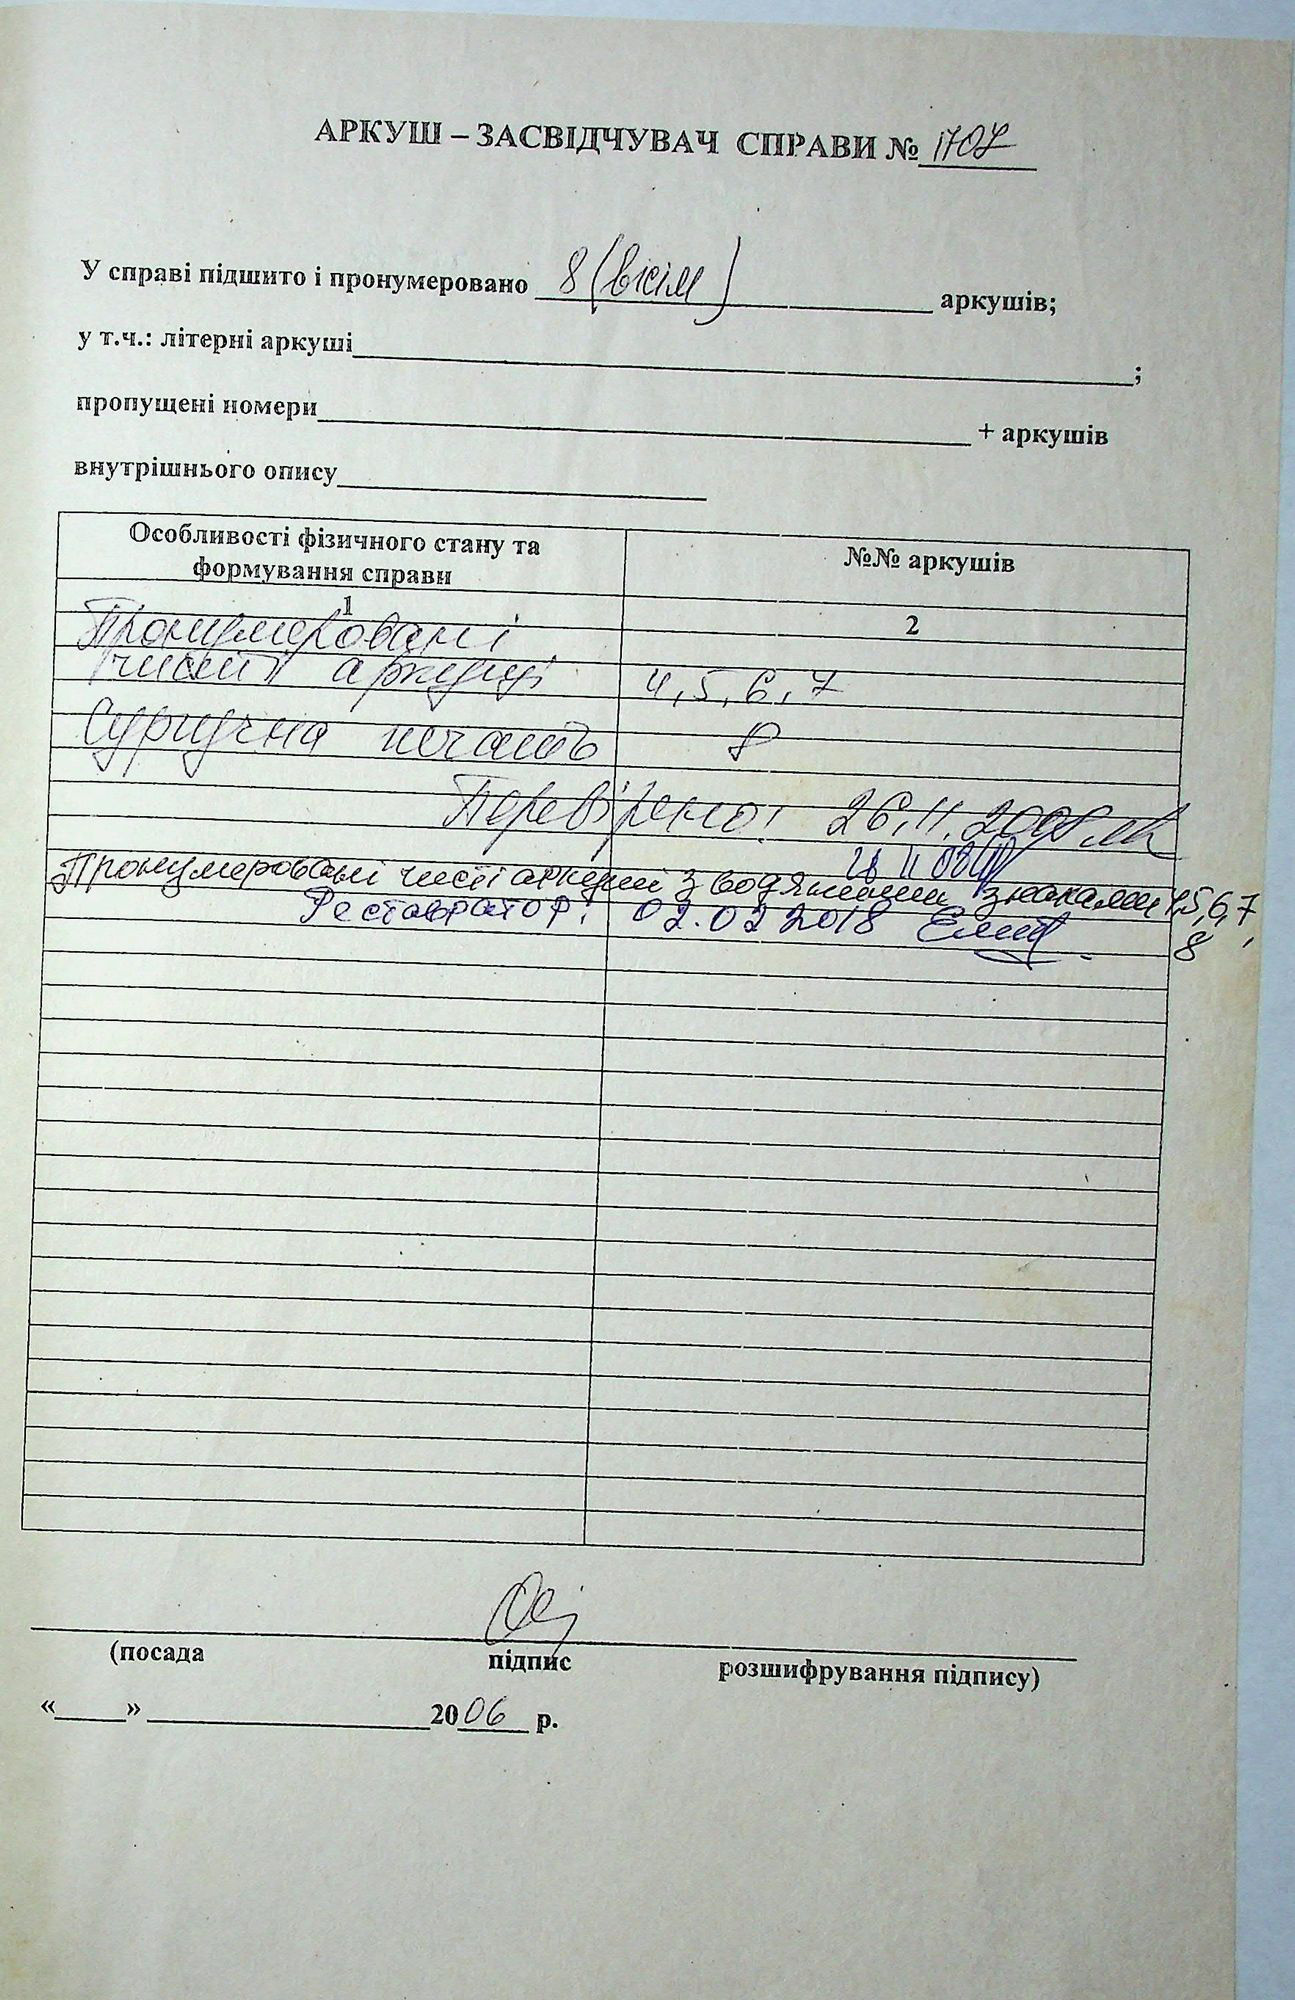 АРКУШ – ЗАСВІДЧУВАЧ СПРАВИ № 1707
У справі підшито і пронумеровано 8 (вісім) аркушів;
у т.ч.: літерні аркуші ;
пропущені номери + аркушів
внутрішнього опису
Особливості фізичного стану та формування справи №№ аркушів
1 2
Пронумеровані
чисті аркуші 4, 5, 6, 7
Сургучна печать 8
Перевірено: 26.11.2008
28 11 08
Пронумеровані чисті аркуші з водяними знаками 4,5,6,7,
8
Реставратор: 02.02 2018
(посада підпис розшифрування підпису)
«_____» 2006 р.